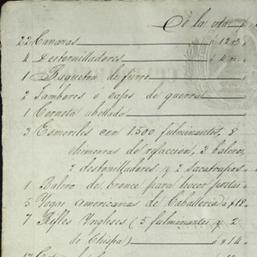 De la vta
22 Cananas $ 12 ..
4 Destornilladores $ 4 ..
1 Baqueton de fierro
2 Tambores ó cajas de guerra
1 Corneta abollada
3 Esmeriles con 1500 fulminantes, 8
chimeneas de refaccion, 3 baleros,
3 destornilladores y 2 sacatrapos
1 Balero de bronce para hacer postas
5 Tegas Americanas de Caballeria $ 18
7 Rifles Yngleses (5 fulminantes y 2
de Chispa) $ 14